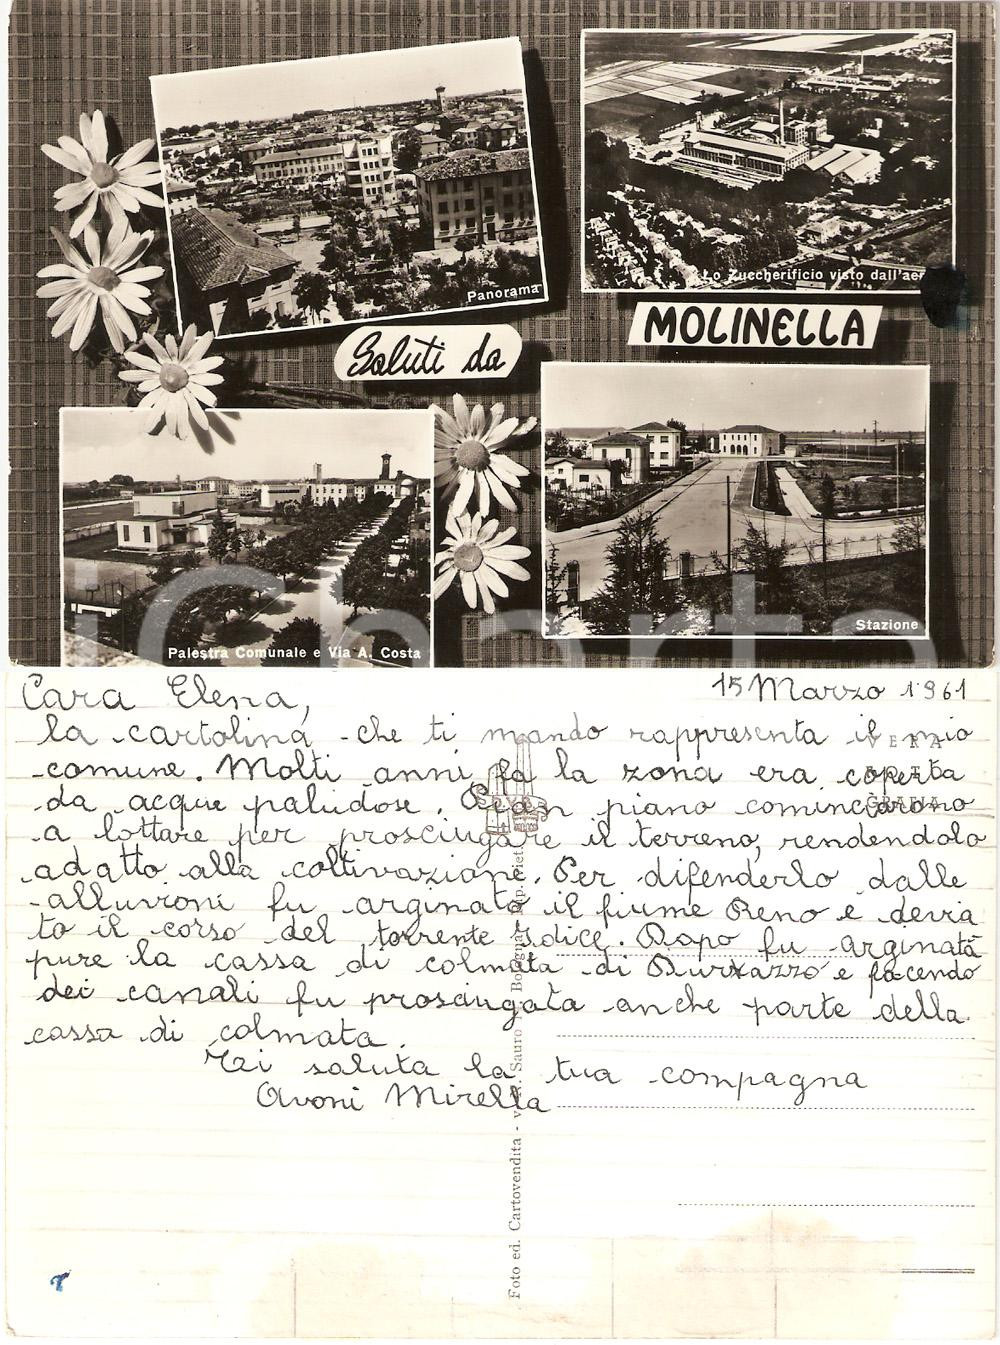 Panorama
Lo Zuccherificio visto dall'aer
Saluti da
MOLINELLA
Palestra Comunale e Via A. Costa
Stazione
Cara Elena,
15 Marzo 1961
la cartolina che ti mando rappresenta il mio
comune. Molti anni fa la zona era coperta
da acque paludose. Pean piano cominciarono
a lottare per prosciugare il terreno, rendendolo
adatto alla coltivazione. Per difenderlo dalle
alluvioni fu arginato il fiume Reno e devia
to il corso del torrente Idice. Dopo fu arginata
pure la cassa di colmata di Durazzo e facendo
dei canali fu prosciugata anche parte della
cassa di colmata.
Ti saluta la tua compagna
Avoni Mirella
VERA
FOTO
GRAFIA
Foto ed. Cartovendita - v. N. Sauro Bologna Rip. Viet.